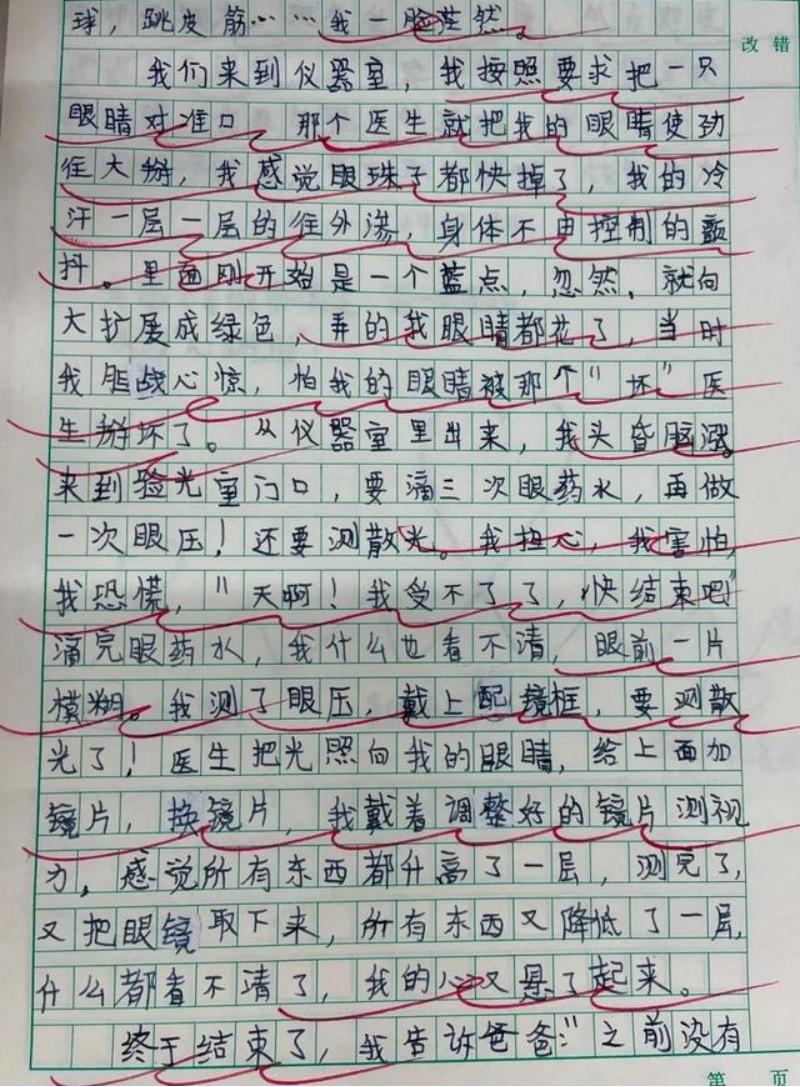 球，跳皮筋……我一脸茫然。
改错
我们来到仪器室，我按照要求把一只
眼睛对准口 那个医生就把我的眼睛使劲
往大掰，我感觉眼珠子都快掉了，我的冷
汗一层一层的往外渗，身体不由控制的颤
抖。里面刚开始是一个蓝点，忽然，就向
大扩展成绿色，弄的我眼睛都花了，当时
我胆战心惊，怕我的眼睛被那个“坏”医
生掰坏了。从仪器室里出来，我头昏脑涨。
来到验光室门口，要滴三次眼药水，再做
一次眼压！还要测散光。我担心，我害怕，
我恐慌，“天啊！我受不了了，快结束吧”
滴完眼药水，我什么也看不清，眼前一片
模糊。我测了眼压，戴上配镜框，要测散
光了！医生把光照向我的眼睛，给上面加
镜片，换镜片，我戴着调整好的镜片测视
力，感觉所有东西都升高了一层，测完了，
又把眼镜取下来，所有东西又降低了一层，
什么都看不清了，我的心又悬了起来。
终于结束了，我告诉爸爸：“之前没有
第 页